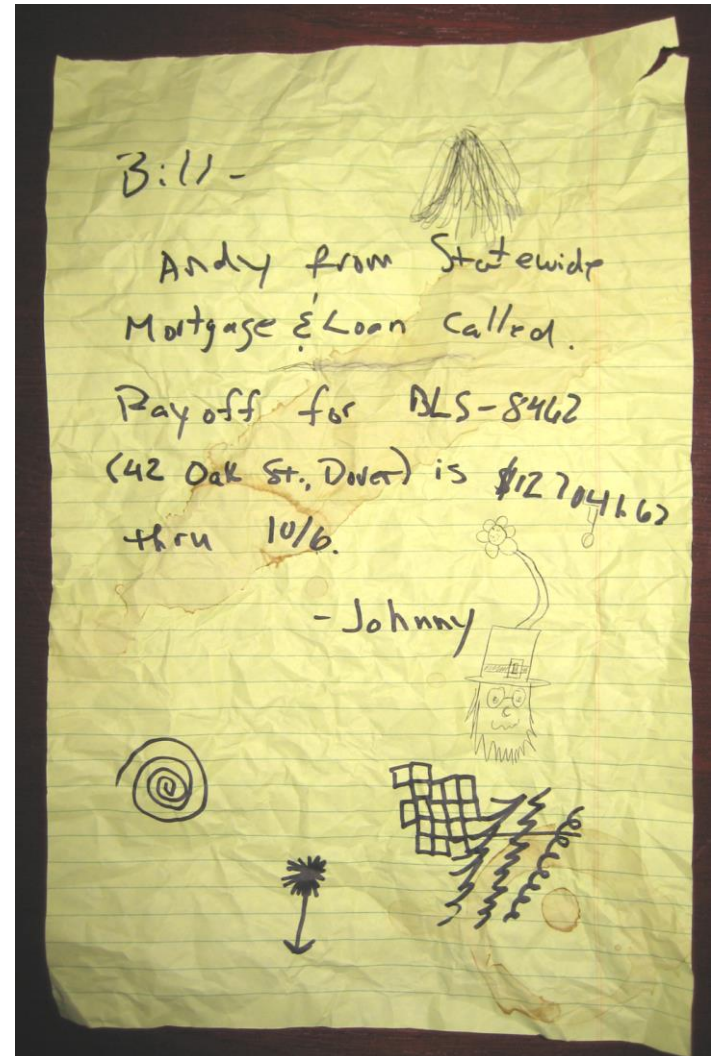 Bill-
Andy from Statewide
Mortgage & Loan Called.
Payoff for BLS-8462
(42 Oak St., Dover) is $127041.62
thru 10/6.
-Johnny